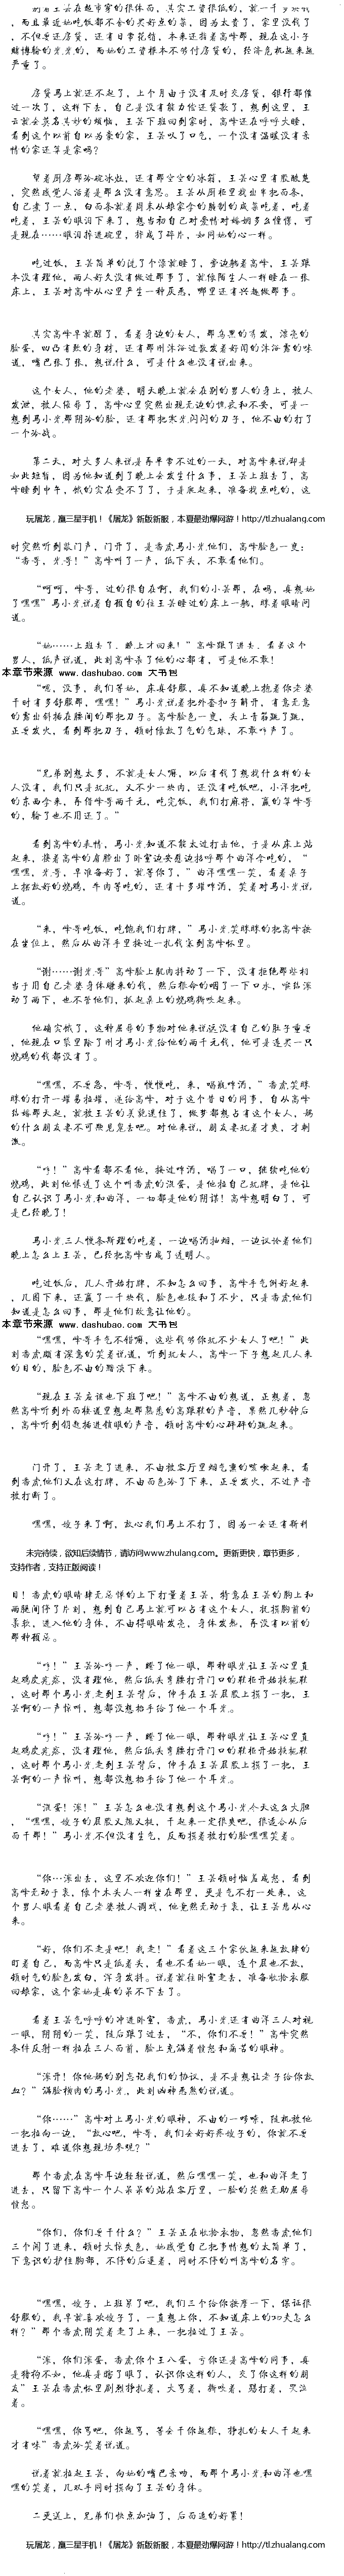 别看王芸在超市穿的很体面,其实工资很低的,就一千多块钱
,而且最近她吃饭都不舍的买好点的菜,因为太贵了,家里没钱了
,不但要还房贷,还有日常花销,本来还指着高峰那,现在这小子
赌博输的光光的,而她的工资根本不够付房贷的,经济危机越来越
严重了。
房贷马上就还不起了,上个月由于没有及时交房贷,银行都催
过一次了,这样下去,自己是没有能力偿还贷款了,想到这里,王
芸就会莫名其妙的烦恼,王芸下班回到家时,高峰还在呼呼大睡,
看到这个以前自以为豪的家,王芸叹了口气,一个没有温暖没有亲
情的家还算是家吗?
望着厨房那冷碗冰灶,还有那空空的冰箱,王芸心里有股酸楚
,突然感觉人活着是那么没有意思。王芸从厨柜里找出半把面条,
自己煮了一点,白面条就着周末从娘家拿的腌制的咸菜吃着,吃着
吃着,王芸的眼泪下来了,想当初自己对爱情对婚姻多么憧憬,可
是现在……眼泪掉进碗里,摔成了碎片,如同她的心一样。
吃过饭,王芸简单的洗了个澡就睡了,旁边躺着高峰,王芸跟
本没有理他,两人好久没有做过那事了,就像陌生人一样睡在一张
床上,王芸对高峰从心里产生一种厌恶,哪里还有兴趣做那事。
其实高峰早就醒了,看着身边的女人,那乌黑的秀发,漂亮的
脸蛋,凹凸有致的身材,还有那刚沐浴过散发着好闻的沐浴露的味
道,嘴巴张了张,想说什么,可是什么也没有说出来。
这个女人,他的老婆,明天晚上就会在别的男人的身上,被人
发泄,被人侮辱了,高峰心里突然出现无边的愤哀和不安,可是一
想到马小光那阴冷的脸,还有那把寒光闪闪的刀子,他不由的打了
一个冷战。
第二天,对大多人来说是再平常不过的一天,对高峰来说却是
如此短暂,因为他知道到了晚上会发生什么事,王芸上班去了,高
峰睡到中午,饿的实在受不了了,于是爬起来,准备找点吃的,这
玩屠龙,赢三星手机!《屠龙》新版新服,本夏最劲爆网游!http://tl.zhualang.com
时突然听到敲门声,门开了,是秦虎马小光他们,高峰脸色一变:
“秦哥,光哥!”高峰叫了一声,低下头,不敢看他们。
“呵呵,峰哥,过的很自在啊,我们的小芸那,在吗,真想她
了嘿嘿”马小光说着自顾自的往王芸睡过的床上一躺,眯着眼睛问
道。
“她……上班去了,晚上才回来!”高峰跟了进去,看着这个
男人,低声说道,此刻高峰杀了他的心都有,可是他不敢!
本章节来源 www.dashubao.com 大书包
“嗯,没事,我们等她,床真舒服,真不知道晚上抱着你老婆
干时有多舒服那,嘿嘿!”马小光说着把外套扣子解开,有意无意
的露出斜插在腰间的那把刀子。高峰脸色一变,头上青筋跳了跳,
正要发火,看到那把刀子,顿时像泄了气的气球,不敢吭声了。
“兄弟别想太多,不就是女人嘛,以后有钱了想找什么样的女
人没有,我们只是玩玩,又不少一块肉,还没有吃饭吧,小洋把吃
的东西拿来,再借峰哥两千元,吃完饭,我们打麻将,赢的算峰哥
的,输了也不用还了。”
看到高峰的表情,马小光知道不能太过打击他,于是从床上站
起来,搂着高峰的肩膀出了卧室边安慰边招呼那个曲洋拿吃的,“
嘿嘿,光哥,早准备好了,就等你了,”曲洋嘿嘿一笑,看着桌子
上摆放好的烧鸡,牛肉等吃的,还有十多罐啤酒,笑着对马小光说
道。
“来,峰哥吃饭,吃饱我们打牌,”马小光笑眯眯的把高峰按
在坐位上,然后从曲洋手里接过一扎钱塞到高峰怀里。
“谢……谢光哥”高峰脸上肌肉抖动了一下,没有拒绝那些相
当于用自己老婆身体赚来的钱,然后狠命的咽了一下口水,喉结滚
动了两下,也不管他们,抓起桌上的烧鸡撕咬起来。
他确实饿了,这种屈辱的事物对他来说远没有自己的肚子重要
,他现在口袋里除了刚才马小光给他的两千元钱,他可是连买一只
烧鸡的钱都没有了。
“嘿嘿,不要急,峰哥,慢慢吃,来,喝瓶啤酒,”秦虎笑眯
眯的打开一罐易拉罐,递给高峰,对于这个昔日的同事,自从高峰
结婚那天起,就被王芸的美貌迷住了,做梦都想占有这个女人,妈
的什么朋友妻不可欺见鬼去吧。对他来说,朋友妻玩着才爽,才刺
激。
“哼!”高峰看都不看他,接过啤酒,喝了一口,继续吃他的
烧鸡,此刻他恨透了这个叫秦虎的混蛋,是他拉自己玩牌,是他让
自己认识了马小光和曲洋,一切都是他的阴谋!高峰想明白了,可
是已经晚了!
马小光三人慢条斯理的吃着,一边喝酒抽烟,一边议论着他们
晚上怎么上王芸,已经把高峰当成了透明人。
吃过饭后,几人开始打牌,不知怎么回事,高峰手气倒好起来
,几圈下来,还赢了一千块钱,脸色也缓和了不少,只是秦虎他们
知道是怎么回事,那是他们故意让他的。
本章节来源 www.dashubao.com 大书包
“嘿嘿,峰哥手气不错嘛,这些钱够你玩不少女人了吧!”此
刻秦虎颇有深意的笑着说道,听到玩女人,高峰一下子想起几人来
的目的,脸色不由的黯淡下来。
“现在王芸应该也下班了吧!”高峰不由的想道,正想着,忽
然高峰听到外面楼道里想起那熟悉的高跟鞋的声音,果然几秒钟后
,高峰听到钥匙插进锁眼的声音,顿时高峰的心砰砰的跳起来。
门开了,王芸走了进来,不由被客厅里烟气熏的咳嗽起来,看
到秦虎他们又在这打牌,不由面色冷了下来,正要发火,不过声音
被打断了。
嘿嘿,嫂子来了啊,放心我们马上不打了,因为一会还有新科
未完待续,欲知后续情节,请访问www.zhulang.com。更新更快,章节更多,
支持作者,支持正版阅读!
目!秦虎的眼睛肆无忌惮的上下打量着王芸,特意在王芸的胸上和
两腿间停了片刻,想到自己马上就可以占有这个女人,抚摸胸前的
柔软,进入他的身体,不由得眼睛发亮,身体发热,再没有以前的
那种顾忌。
“哼!”王芸冷哼一声,瞪了他一眼,那种眼光让王芸心里直
起鸡皮疙瘩,没有理他,然后低头弯腰打开门口的鞋柜开始换拖鞋
,这时那个马小光走到王芸背后,伸手在王芸屁股上摸了一把,王
芸啊的一声惊叫,想都没想抬手给了他一个耳光。
“哼!”王芸冷哼一声,瞪了他一眼,那种眼光让王芸心里直
起鸡皮疙瘩,没有理他,然后低头弯腰打开门口的鞋柜开始换拖鞋
,这时那个马小光走到王芸背后,伸手在王芸屁股上摸了一把,王
芸啊的一声惊叫,想都没想抬手给了他一个耳光。
“混蛋!滚!”王芸怎么也没有想到这个马小光今天这么大胆
,“嘿嘿,嫂子的屁股又翘又挺,干起来一定很爽吧,很适合从后
面干那!”马小光不但没有生气,反而摸着被打的脸嘿嘿笑着。
“你…滚出去,这里不欢迎你们!”王芸顿时恼羞成怒,看到
高峰无动于衷,像个木头人一样坐在那里,更是气不打一处来,这
个男人眼看着自己老婆被人调戏,他竟然无动于衷,让王芸悲从心
来。
“好,你们不走是吧!我走!”看着这三个家伙越来越放肆的
盯着自己,而高峰只是低着头,看也不看她一眼,连个屁也不放,
顿时气的脸色发白,浑身发抖。说着就往卧室走去,准备收拾衣服
回娘家,这个家她是真的呆不下去了。
看着王芸气呼呼的冲进卧室,秦虎,马小光还有曲洋三人对视
一眼,阴阴的一笑,随后跟了过去,“不,你们不要!”高峰突然
条件反射一样拦在三人面前,脸上充满着愤怒和痛苦的眼神。
“滚开!你他妈的别忘记我们的协议,是不是想让老子给你放
血?”满脸横肉的马小光,此刻凶神恶煞的说道。
“你……”高峰对上马小光的眼神,不由的一哆嗦,随机被他
一把推向一边,“放心吧,峰哥,我们会好好疼嫂子的,你就不要
进去了,难道你想现场参观?”
那个秦虎在高峰耳边轻轻说道,然后嘿嘿一笑,也和曲洋走了
进去,只留下高峰一个人呆呆的站在客厅里,一脸的茫然无助屈辱
愤怒。
“你们,你们要干什么?”王芸正在收拾衣物,忽然秦虎他们
三个闯了进来,顿时大惊失色,她感觉自己把事情想的太简单了,
下意识的护住胸部,不停的后退着,同时不停的叫高峰的名字。
“嘿嘿,嫂子,上班累了吧,我们三个给你按摩一下,保证很
舒服的,我早就喜欢嫂子了,一直想上你,不知道床上的功夫怎么
样?”那个秦虎阴笑着走了上来,一把拉过了王芸。
“滚,你们混蛋,秦虎,你个王八蛋,亏你还是高峰的同事,真
是猪狗不如,他真是瞎了眼了,认识你这样的人,交了你这样的朋
友”王芸在秦虎怀里剧烈挣扎着,大骂着,撕咬着,踢打着,哭泣
着。
“嘿嘿,你骂吧,你越骂,等会干你越狠,挣扎的女人干起来
才有味”秦虎冷笑着说道。
说着就抱起王芸,向她的嘴巴亲吻,而那个马小光和曲洋也嘿
嘿的笑着,几双手同时摸向了王芸的身体。
二更送上,兄弟们快点加油了,后面追的好累!
玩屠龙,赢三星手机!《屠龙》新版新服,本夏最劲爆网游!http://tl.zhualang.com